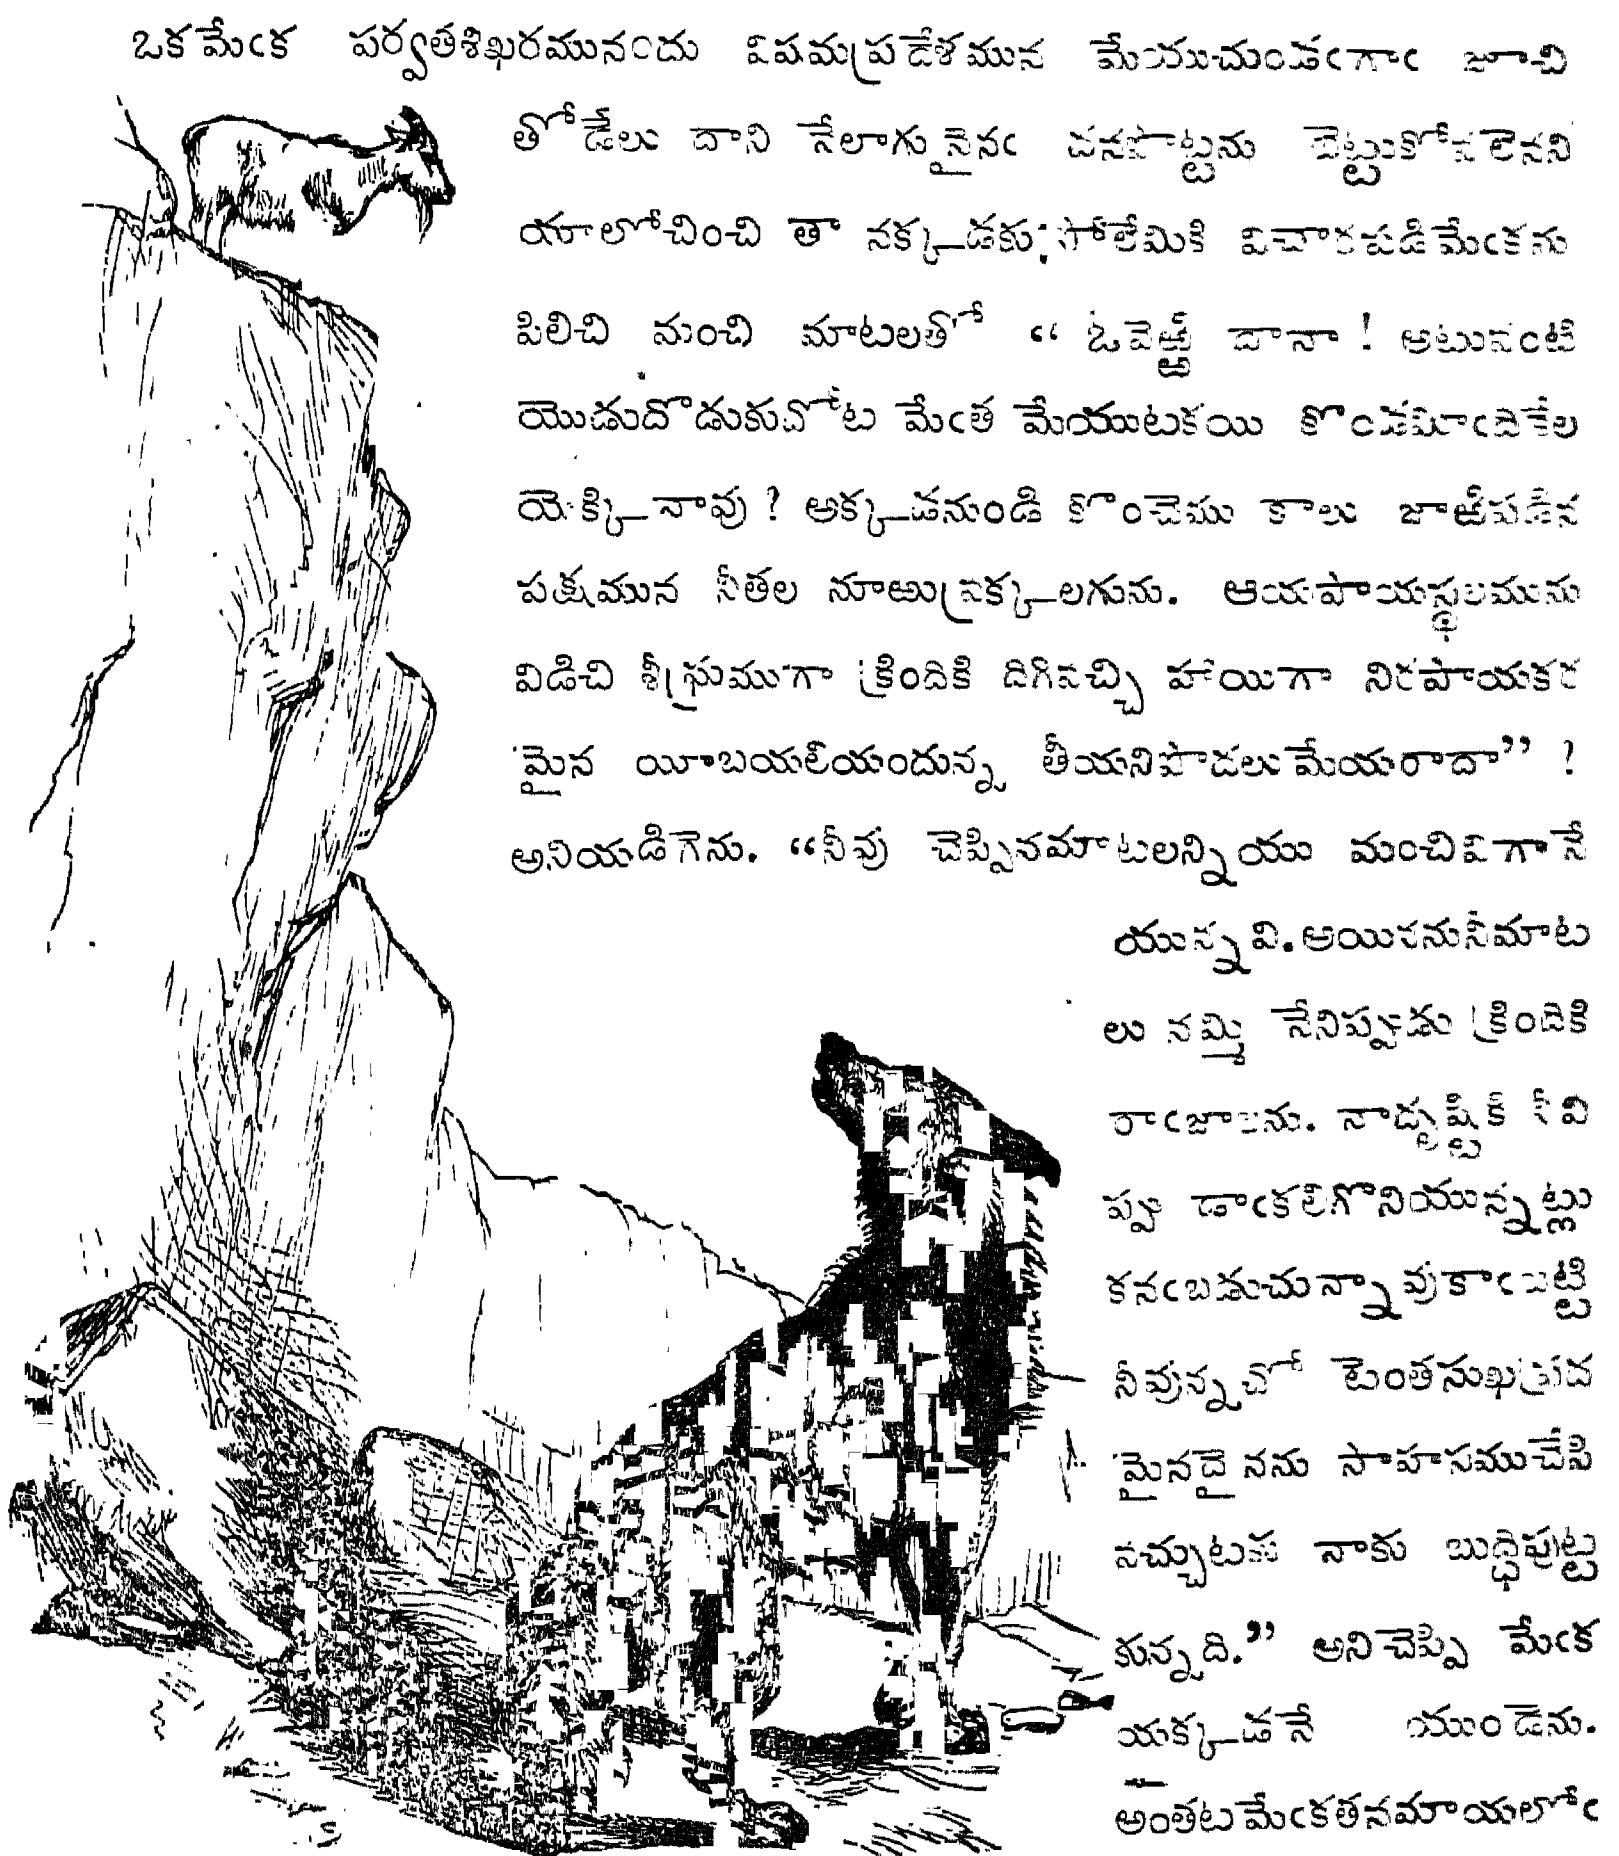 ఒకమేఁక పర్వతశిఖరమునందు విషమప్రదేశమున మేయుచుండఁగాఁ జూచి
తోడేలు దాని నేలాగు నైనఁ దనపొట్టను బెట్టుకోవలెనని
యాలోచించి తా నక్కడకుఁ బోలేమికి విచారపడి మేఁకను
పిలిచి మంచి మాటలతో “ ఓవెఱ్ఱి దానా ! అటువంటి
యొడుదొడుకుచోట మేఁత మేయుటకయి కొండమీఁదికేల
యెక్కినావు ? అక్కడనుండి కొంచెము కాలు జాఱిపడిన
పక్షమున నీతల నూఱువ్రక్కలగును. ఆయపాయస్థలమును
విడిచి శీఘ్రముగా క్రిందికి దిగివచ్చి హాయిగా నిరపాయకర
మైన యీబయల్యందున్న తీయనిపొదలు మేయరాదా” ?
అనియడిగెను. “నీవు చెప్పినమాటలన్నియు మంచివిగానే
యున్నవి. అయినను నీమాట
లు నమ్మి నేనిప్పుడు క్రిందికి
రాఁజాలను. నాదృష్టికి నీవి
ప్పు డాఁకలిగొనియున్నట్లు
కనఁబడుచున్నావు కాఁబట్టి
నీవున్నచో టెంతసుఖప్రద
మైనదైనను సాహసముచేసి
వచ్చుటకు నాకు బుద్ధిపుట్ట
కున్నది.” అని చెప్పి మేఁక
యక్కడనే యుండెను.
అంతట మేఁకతనమాయలోఁ